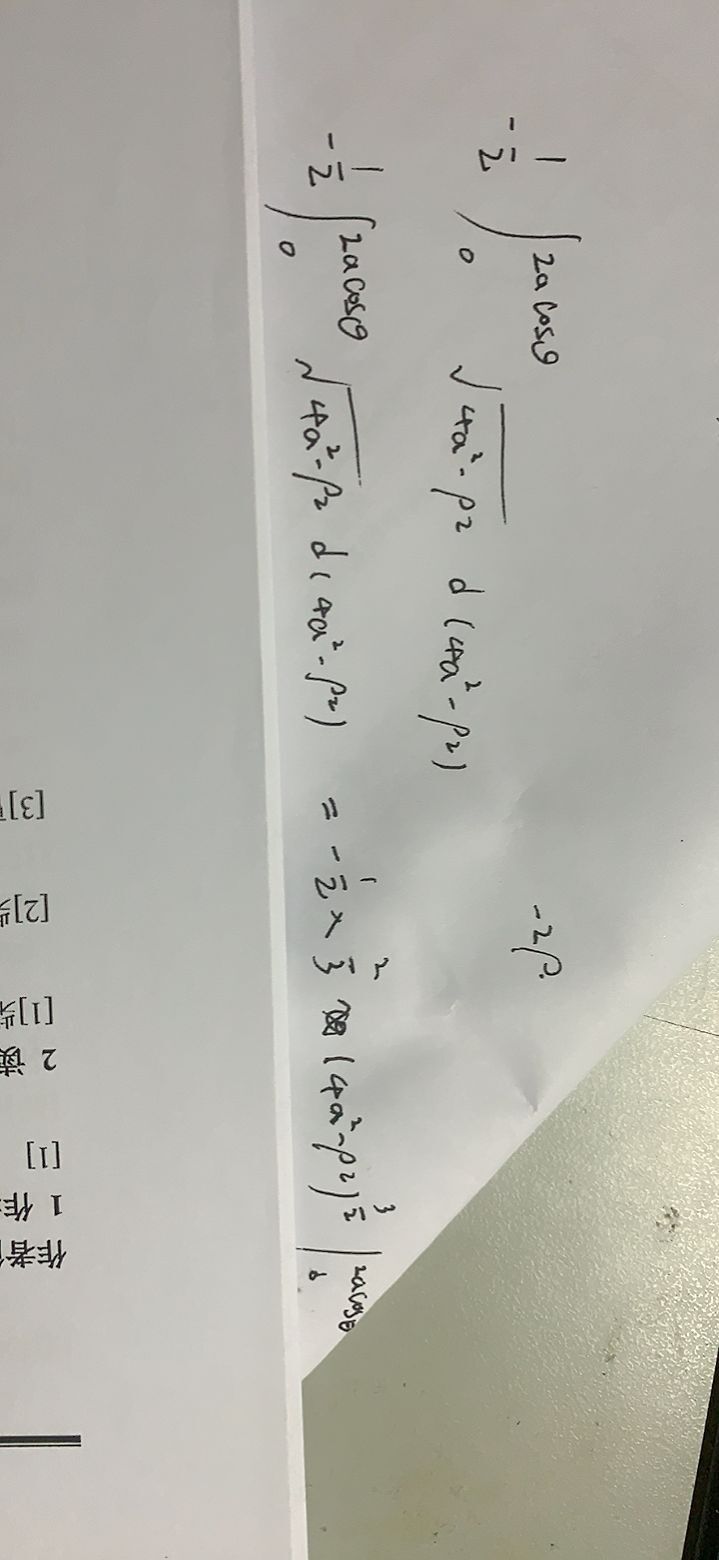 -1/2 ∫₀^{2a cosθ} √(4a²-ρ²) d(4a²-ρ²)
-2ρ
-1/2 ∫₀^{2a cosθ} √(4a²-ρ²) d(4a²-ρ²) = -1/2 × 2/3 (4a²-ρ²)^{3/2} |₀^{2a cosθ}
[3]
[2]
[1]
2 读
[1]
1 作
作者